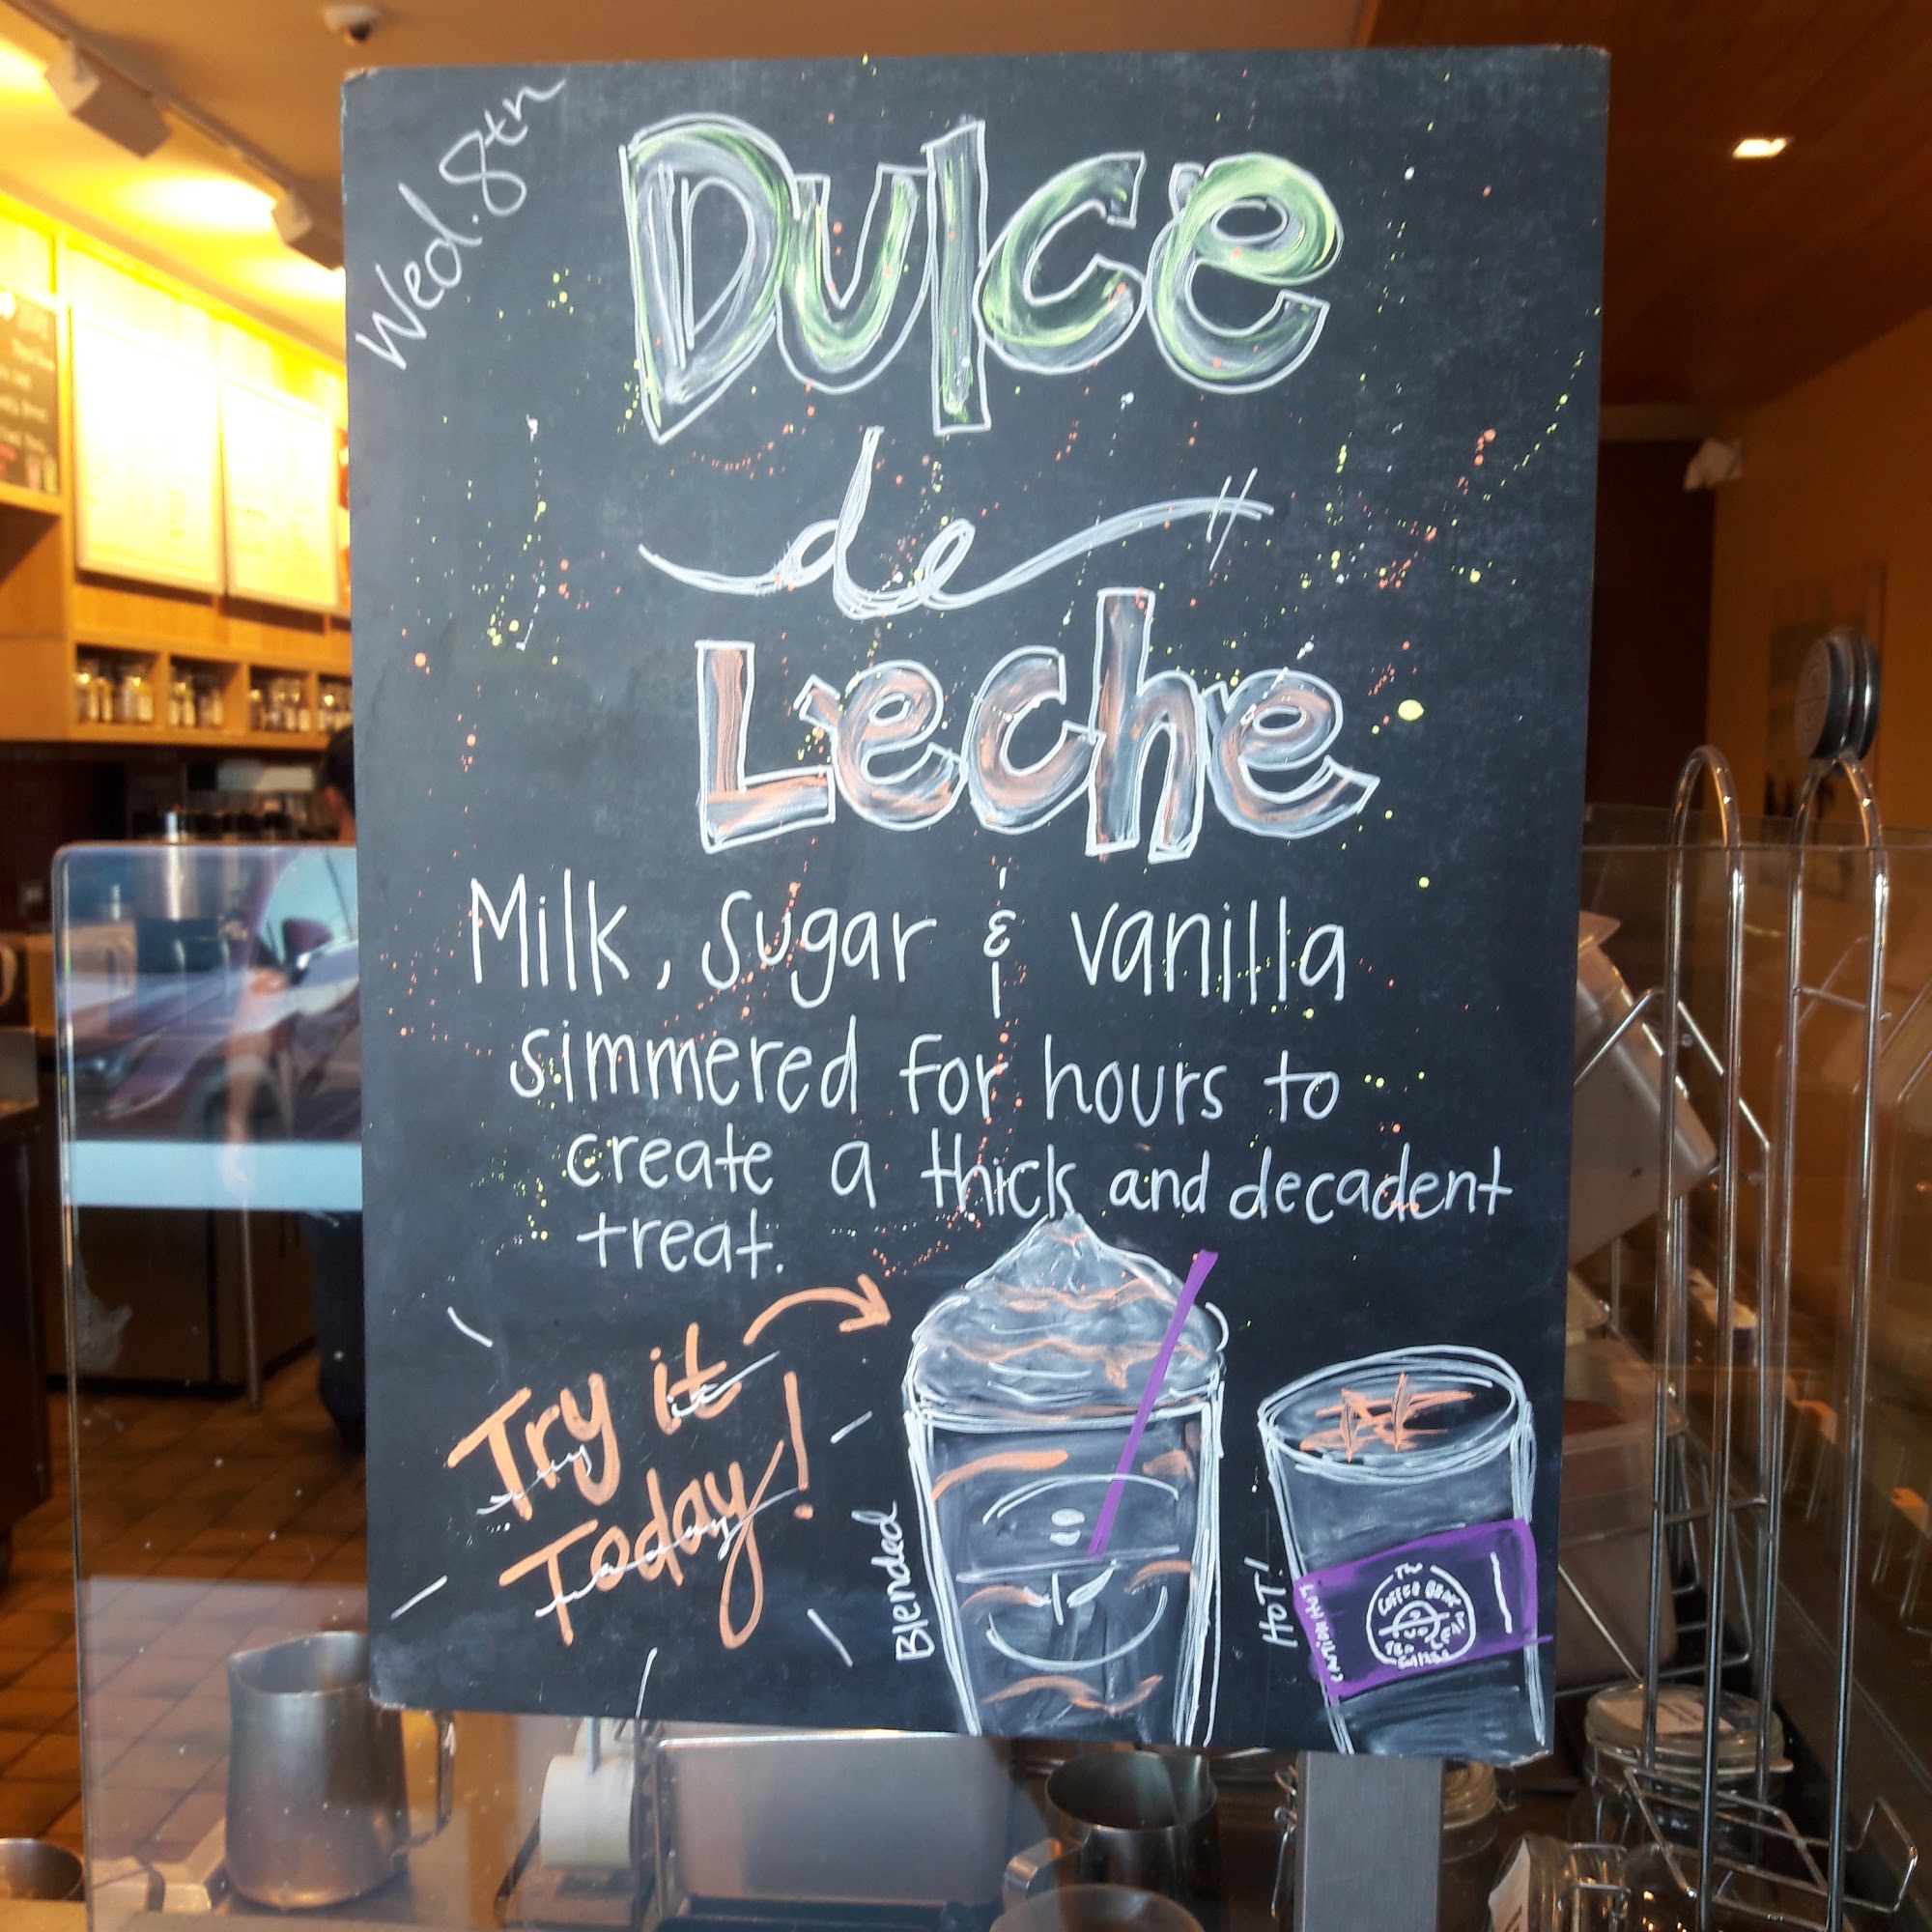 Wed. 8th
Dulce
de
Leche
Milk, sugar & vanilla
simmered for hours to
create a thick and decadent
treat.
Try it
Today!
Blended
HOT!
CAUTION HOT
The
Coffee Bean
Tea Leaf